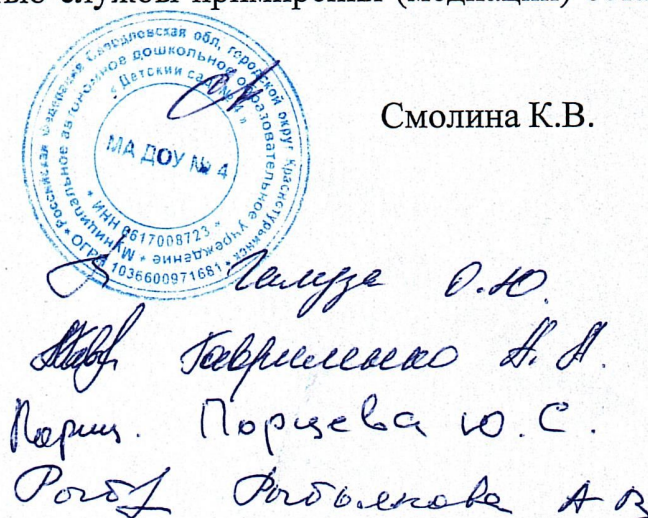 службы примирения (медиации)
Российская Федерация Свердловская обл, городской округ Краснотурьинск
Муниципальное автономное дошкольное образовательное учреждение
« Детский сад № 4 »
МА ДОУ № 4
ИНН 6617008723
ОГРН 1036600971681
Смолина К.В.
О.Ю.
Гавриленко Н. Н.
Порцева Ю. С.